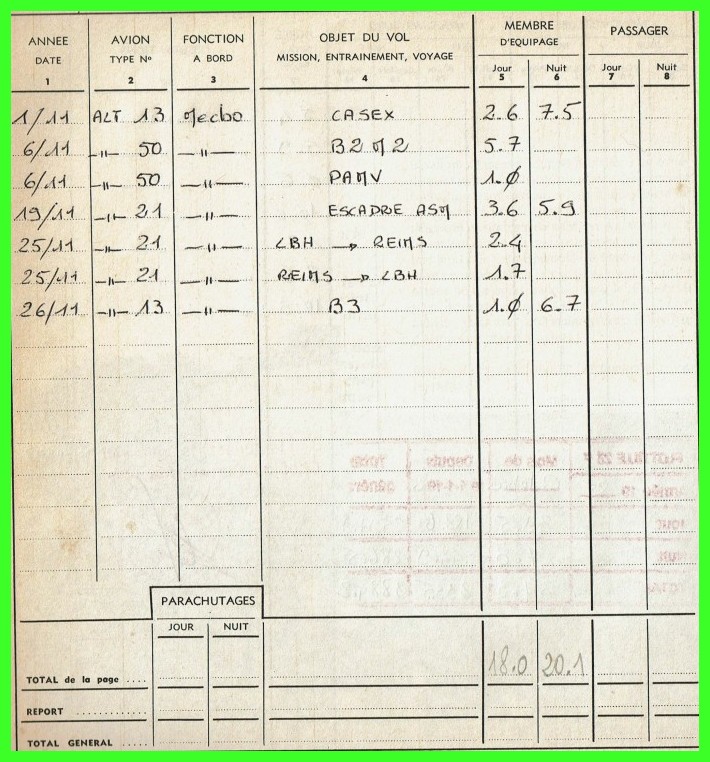 ANNEE AVION FONCTION OBJET DU VOL MEMBRE D'EQUIPAGE PASSAGER
DATE TYPE No A BORD MISSION, ENTRAINEMENT, VOYAGE Jour Nuit Jour Nuit
1 2 3 4 5 6 7 8
1/11 ALT 13 Mecbo CASEX 2.6 7.5
6/11 —"— 50 —"— B2M2 5.7
6/11 —"— 50 —"— PAMV 1.Ø
19/11 —"— 21 —"— ESCADRE ASM 3.6 5.9
25/11 —"— 21 —"— LBH → REIMS 2.4
25/11 —"— 21 —"— REIMS → LBH 1.7
26/11 —"— 13 —"— B3 1.Ø 6.7
PARACHUTAGES
JOUR NUIT
TOTAL de la page .... 18.0 20.1
REPORT ............
TOTAL GENERAL .....